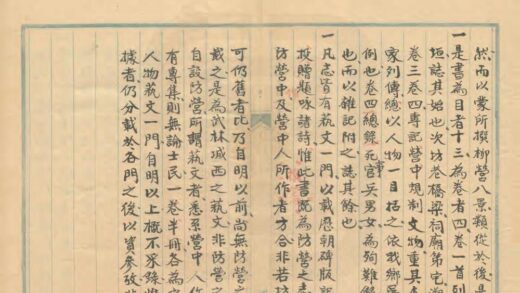 然而以蒙所撰柳營八景類從於後是
一是書為目者十三為卷者四卷一首列
垣誌其始也次坊巷橋梁祠廟第宅
卷三卷四專記營中規制文物重其
家列傳總以人物一目括之依我鄉
例也卷四總錄死事官吳男女為殉難錄
也而以雜記附之誌其餘也
一凡志皆有藝文一門以載歷朝碑版記
投贈題咏諸詩惟此書既為防營之志
防營中及營中人所作者方合非若坊
可仍舊者比乃自明以前尚無防營之
載之是為武林城西之藝文非防營之
自設防營所謂藝文者悉系營中人作
有專集則無論士民一卷半冊各為
人物藝文一門自明以上概不采錄
據者仍分載於各門之後以資參攷